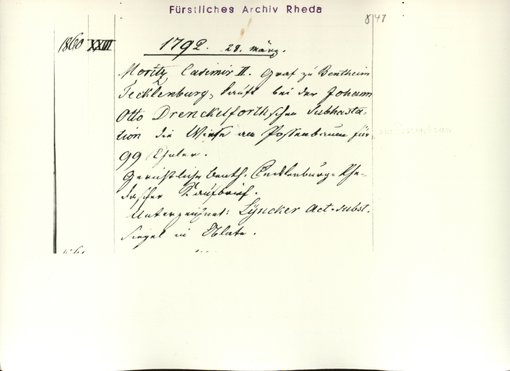 Fürstliches Archiv Rheda
1860 XXIII 1792. 28. März.
Moritz Casimir II. Graf zu Bentheim
Tecklenburg, kauft bei der Johann
Otto Drenckelforthschen Subhasta-
tion die Wiese am Postenbaum für
99 Thaler.
Gerichtliche Benth. Tecklenburg-Rhe-
daischer Kaufbrief.
Unterzeichnet: Lyncker Act. subst.
Siegel in Oblate.